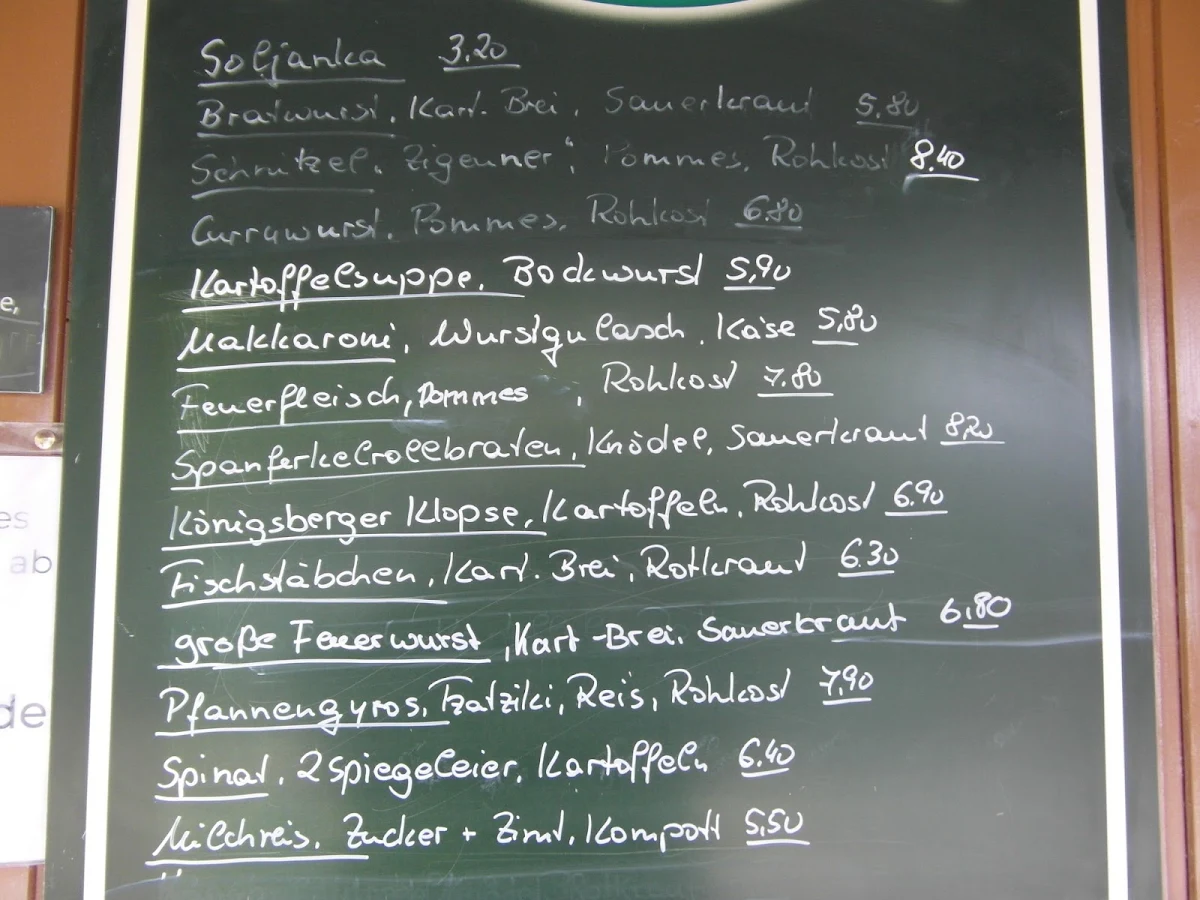 Soljanka 3.20
Bratwurst, Kart. Brei, Sauerkraut 5,80
Schnitzel, Zigeuner", Pommes, Rohkost 8.40
Currywurst, Pommes, Rohkost 6.80
Kartoffelsuppe, Bockwurst 5,90
Makkaroni, Wurstgulasch, Käse 5,80
Feuerfleisch, Pommes, Rohkost 7.80
Spanferkelrollebraten, Knödel, Sauerkraut 8,20
Königsberger Klopse, Kartoffeln, Rohkost 6.90
Fischstäbchen, Kart. Brei, Rotkraut 6.30
große Feuerwurst, Kart-Brei, Sauerkraut 6,80
Pfannengyros, Tzatziki, Reis, Rohkost 7,90
Spinat, 2 Spiegeleier, Kartoffeln 6.40
Milchreis, Zucker + Zimt, Kompott 5,50
e,
es
ab
de